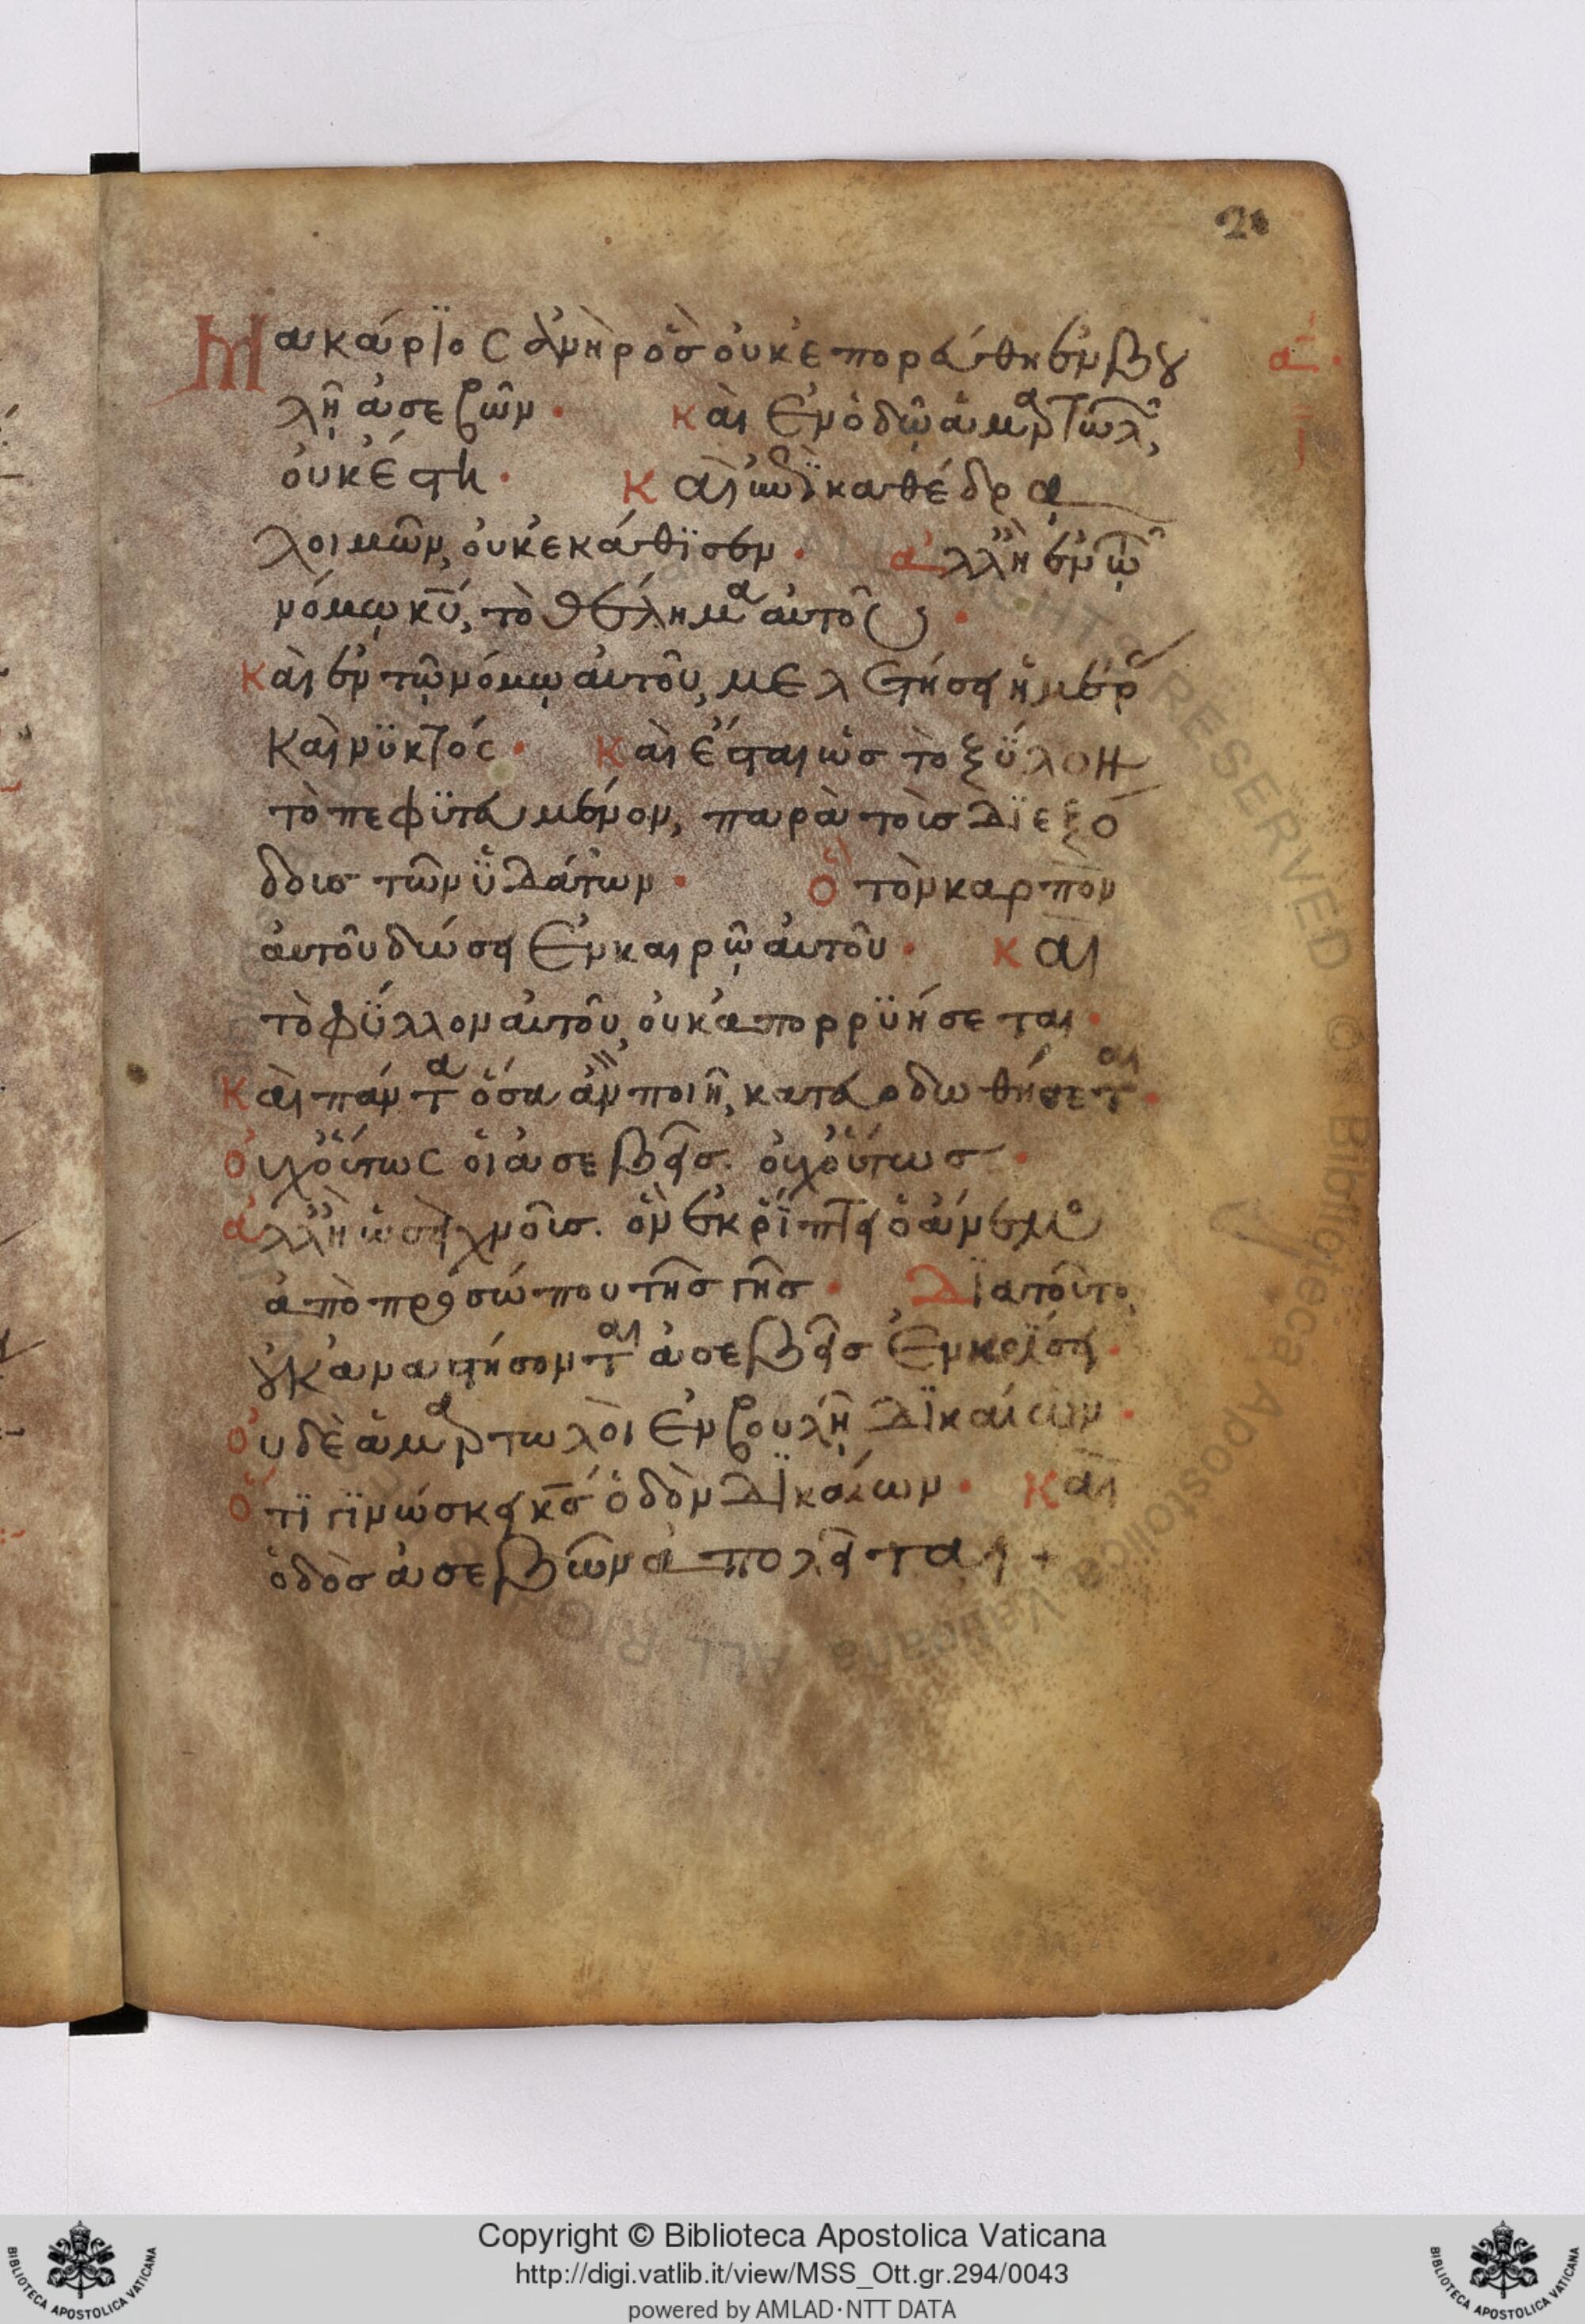 20
Μακάρϊος ἀνὴρ ὃσ ὀυκ ἐπορέυθη ἐν βȣ
λῆ ἀσεβῶν· Κὰι ἐν ὁδῶ ἁμαρτωλ
ὀυκ ἔστη· Κὰι ἐπὶ καθέδρα
λοιμῶν, ὀυκ ἐκάθϊσεν· ἀλλ' ἢ ἐν τῶ
νόμω κ̅υ̅, τὸ θέλημα ἀυτοῦ·
Κὰι ἐν τῶ νόμω ἀυτοῦ, μελετήσει ἡμέρ
Κὰι νϋκτός· Κὰι ἔσται ὡσ τὸ ξϋλον
τὸ πεφϋτευμένον, παρὰ τὰσ δϊεξό
δουσ τῶν ϋδάτων· Ὃ τὸν καρπὸν
ἀυτοῦ δώσει ἐν καιρῶ ἀυτοῦ· Και
τὸ φϋλλον ἀυτοῦ, ὀυκ ἀπορρϋήσεται·
Κὰι πάντα ὅσα ἂν ποιῆ, κατευοδωθήσεται·
Ὀυχ ὅυτως ὁι ἀσεβεῖσ. ὀυχ ὅυτωσ·
ἀλλ' ἢ ὡσεὶ χνοῦσ. ὃν ἐκρΐπτει ὁ ἄνεμο
ἀπὸ προσώπου τῆσ γῆσ· Δϊατοῦτο,
ȣκ ἀναστήσονται ἀσεβεῖσ ἐν κρΐσει·
Ὀυδὲ ἁμαρτωλὸι ἐν βουλῆ δϊκαίων·
Ὅτϊ γϊνώσκει κ̅σ̅ ὁδὸν δϊκαίων· Κὰι
ὁδὸσ ἀσεβῶν ἀπολεῖται +
Copyright © Biblioteca Apostolica Vaticana
http://digi.vatlib.it/view/MSS_Ott.gr.294/0043
powered by AMLAD·NTT DATA
BIBLIOTECA APOSTOLICA VATICANA
BIBLIOTECA APOSTOLICA VATICANA